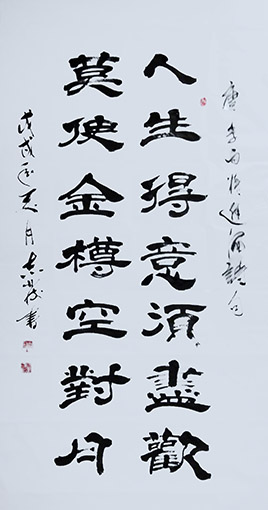 唐李白将进酒诗句
人生得意须盡歡
莫使金樽空對月
戊戌年夏月志敏書